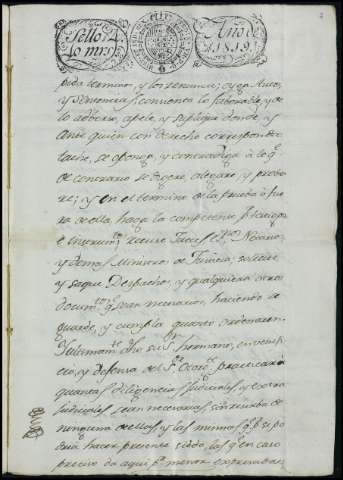 Sello 4º
40 mrs
Año de
1819.
pida termino, y los renuncie; oyga Autos,
y Sentencias; consienta lo faborable, y de
lo adberso apele, y suplique donde, y
Ante quien con derecho corresponda
tache, se oponga, y contradiga à lo q.
de contrario se digere, alegare, y proba
re; y en el termino de la prueba ò fue
ra de ella, haga la competente,
recuse Jueces, Es.nos, Notarios,
y demas Ministros de Justicia, solicite
y saque Despachos, y qualquiera otros
docum.tos q. sean necesarios, haciendo se
guarde, y cumpla quanto ordenaren.
Y ultimam.te dho su S.r hermano, en
y defensa del S.r practicará
quantas diligencias Judiciales, y extra
Judiciales sean necesarias sin reserba de
ninguna de ellas, y las mismas q. p.r si po
dria hacer presente siendo, las q. en caso
preciso da aqui p.r menor expresadas